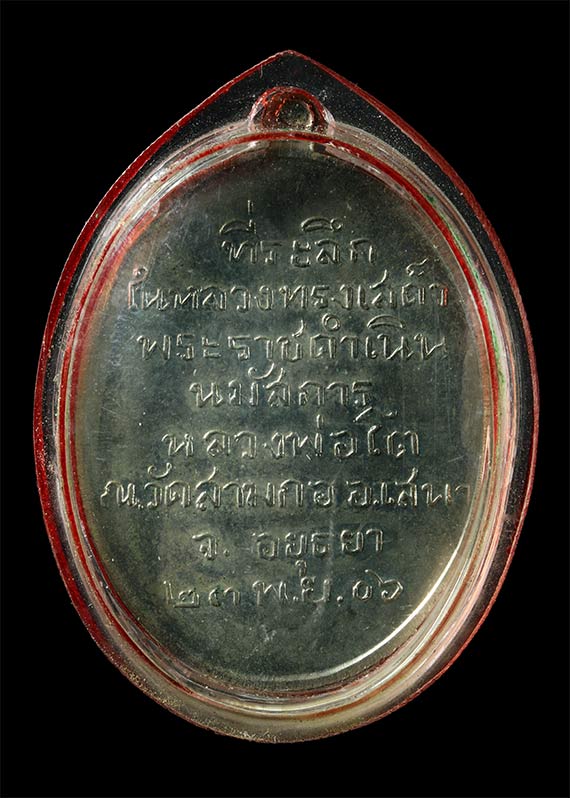 ที่ระลึก
ในหลวงทรงเสด็จ
พระราชดำเนิน
นมัสการ
หลวงพ่อโต
ณ.วัดสามกอ อ.เสนา
จ. อยุธยา
๒๓ พ.ย. ๐๖